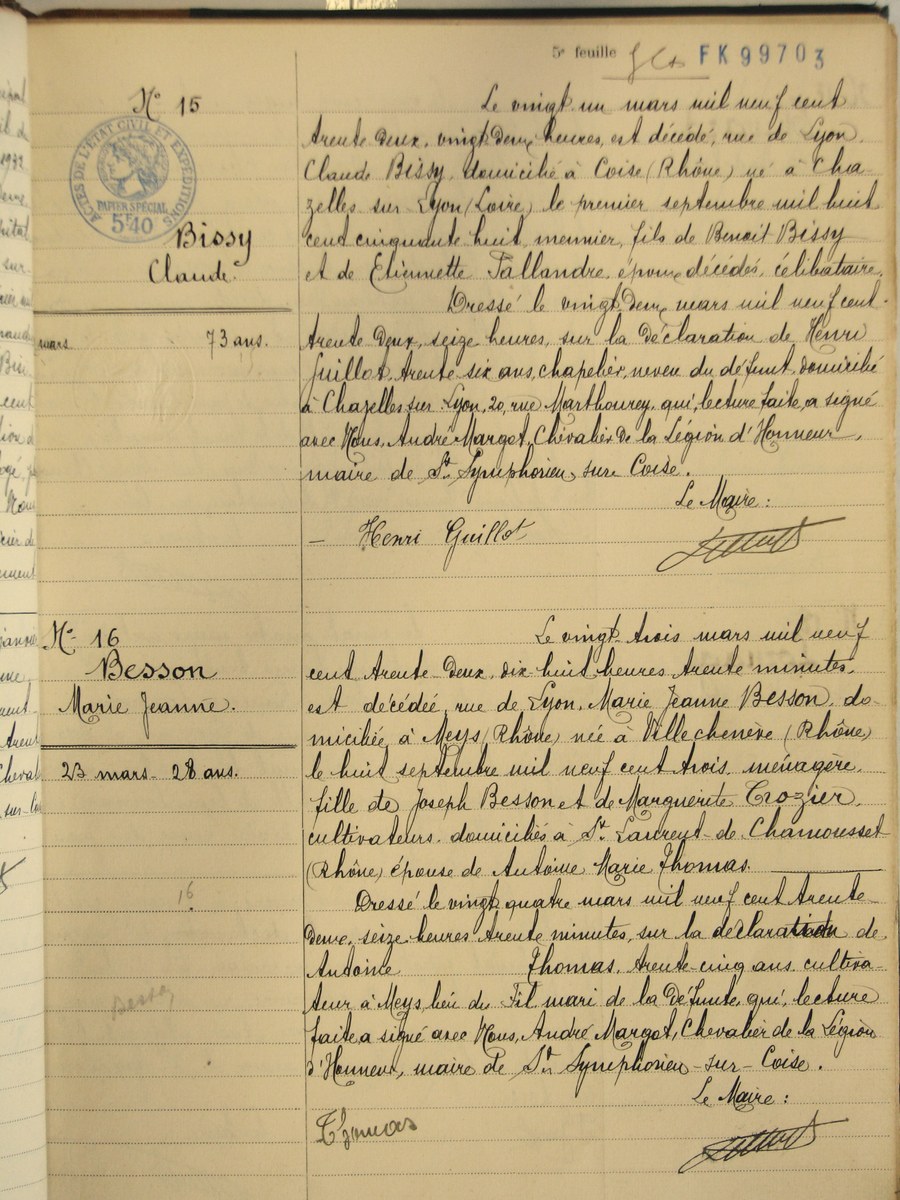 5e feuille FK 99703
No 15
ACTES DE L'ÉTAT CIVIL ET EXPÉDITIONS
PAPIER SPÉCIAL
5F40
Bissy
Claude.
mars 73 ans.
Le vingt un mars mil neuf cent
trente deux, vingt deux heures, est décédé, rue de Lyon
Claude Bissy, domicilié à Coise (Rhône) né à Cha-
zelles sur Lyon (Loire) le premier septembre mil huit
cent cinquante huit, meunier, fils de Benoit Bissy
et de Etiennette Tallandre, époux décédés, célibataire.
Dressé le vingt deux mars mil neuf cent
trente deux, seize heures, sur la déclaration de Henri
Guillot, trente six ans, chapelier, neveu du défunt, domicilié
à Chazelles sur Lyon, 20, rue Marthourey, qui, lecture faite, a signé
avec Nous, André Margot, Chevalier de la Légion d'Honneur,
maire de St Symphorien sur Coise.
Le Maire :
Henri Guillot
No 16
Besson
Marie Jeanne.
23 mars - 28 ans.
16
Besson
Le vingt trois mars mil neuf
cent trente deux, dix huit heures trente minutes,
est décédée, rue de Lyon, Marie Jeanne Besson, do-
miciliée à Meys (Rhône) née à Villechenève (Rhône)
le huit septembre mil neuf cent trois, ménagère,
fille de Joseph Besson et de Marguerite Crozier,
cultivateurs, domiciliés à St Laurent-de Chamousset
(Rhône) épouse de Antoine Marie Thomas.
Dressé le vingt quatre mars mil neuf cent trente-
deux, seize heures trente minutes, sur la déclaration de
Antoine Thomas, trente-cinq ans, cultiva-
teur à Meys, lieu du Fil, mari de la défunte, qui, lecture
faite, a signé avec Nous, André Margot, Chevalier de la Légion
d'Honneur, maire de St Symphorien-sur-Coise.
Le Maire :
Thomas